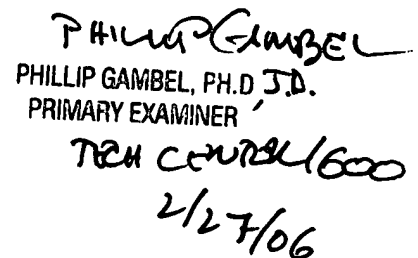 PHILLIP GAMBEL
PHILLIP GAMBEL, PH.D J.D.
PRIMARY EXAMINER
TECH CENTER 1600
2/27/06